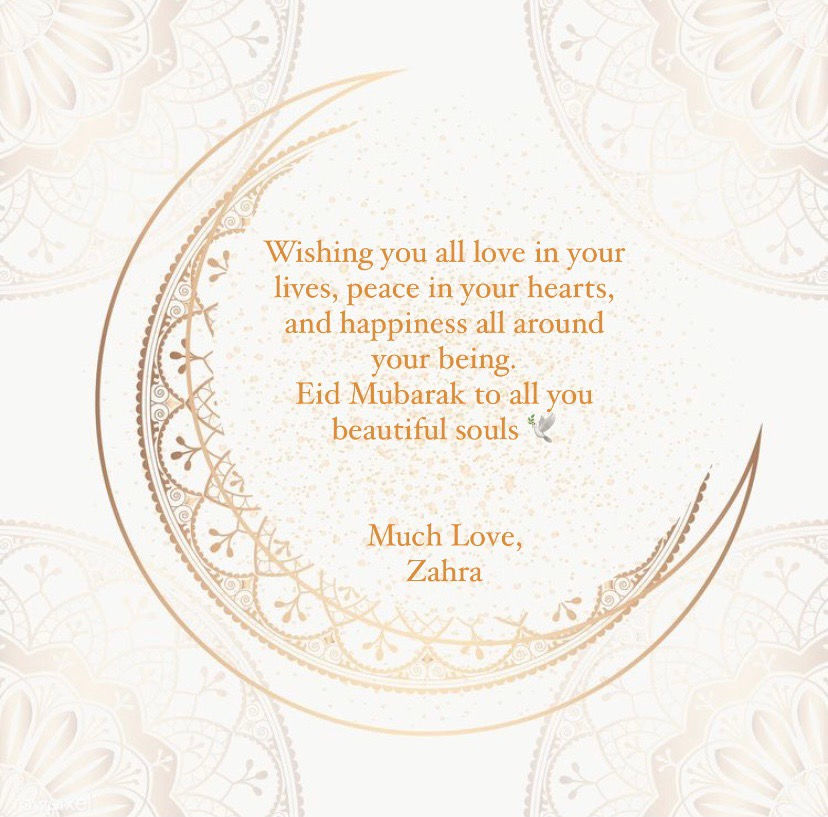 Wishing you all love in your
lives, peace in your hearts,
and happiness all around
your being.
Eid Mubarak to all you
beautiful souls 🕊️
Much Love,
Zahra